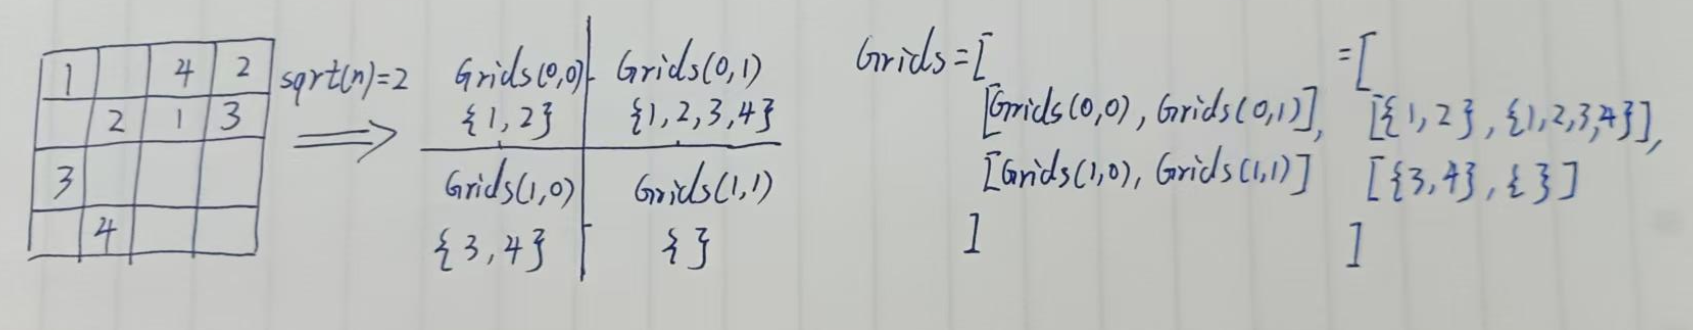 1 4 2
2 1 3
3
4
sqrt(n)=2
Grids(0,0) Grids(0,1)
{1,2} {1,2,3,4}
Grids(1,0) Grids(1,1)
{3,4} {}
Grids=[
[Grids(0,0), Grids(0,1)],
[Grids(1,0), Grids(1,1)]
]
=[
[{1,2},{1,2,3,4}],
[{3,4},{}]
]